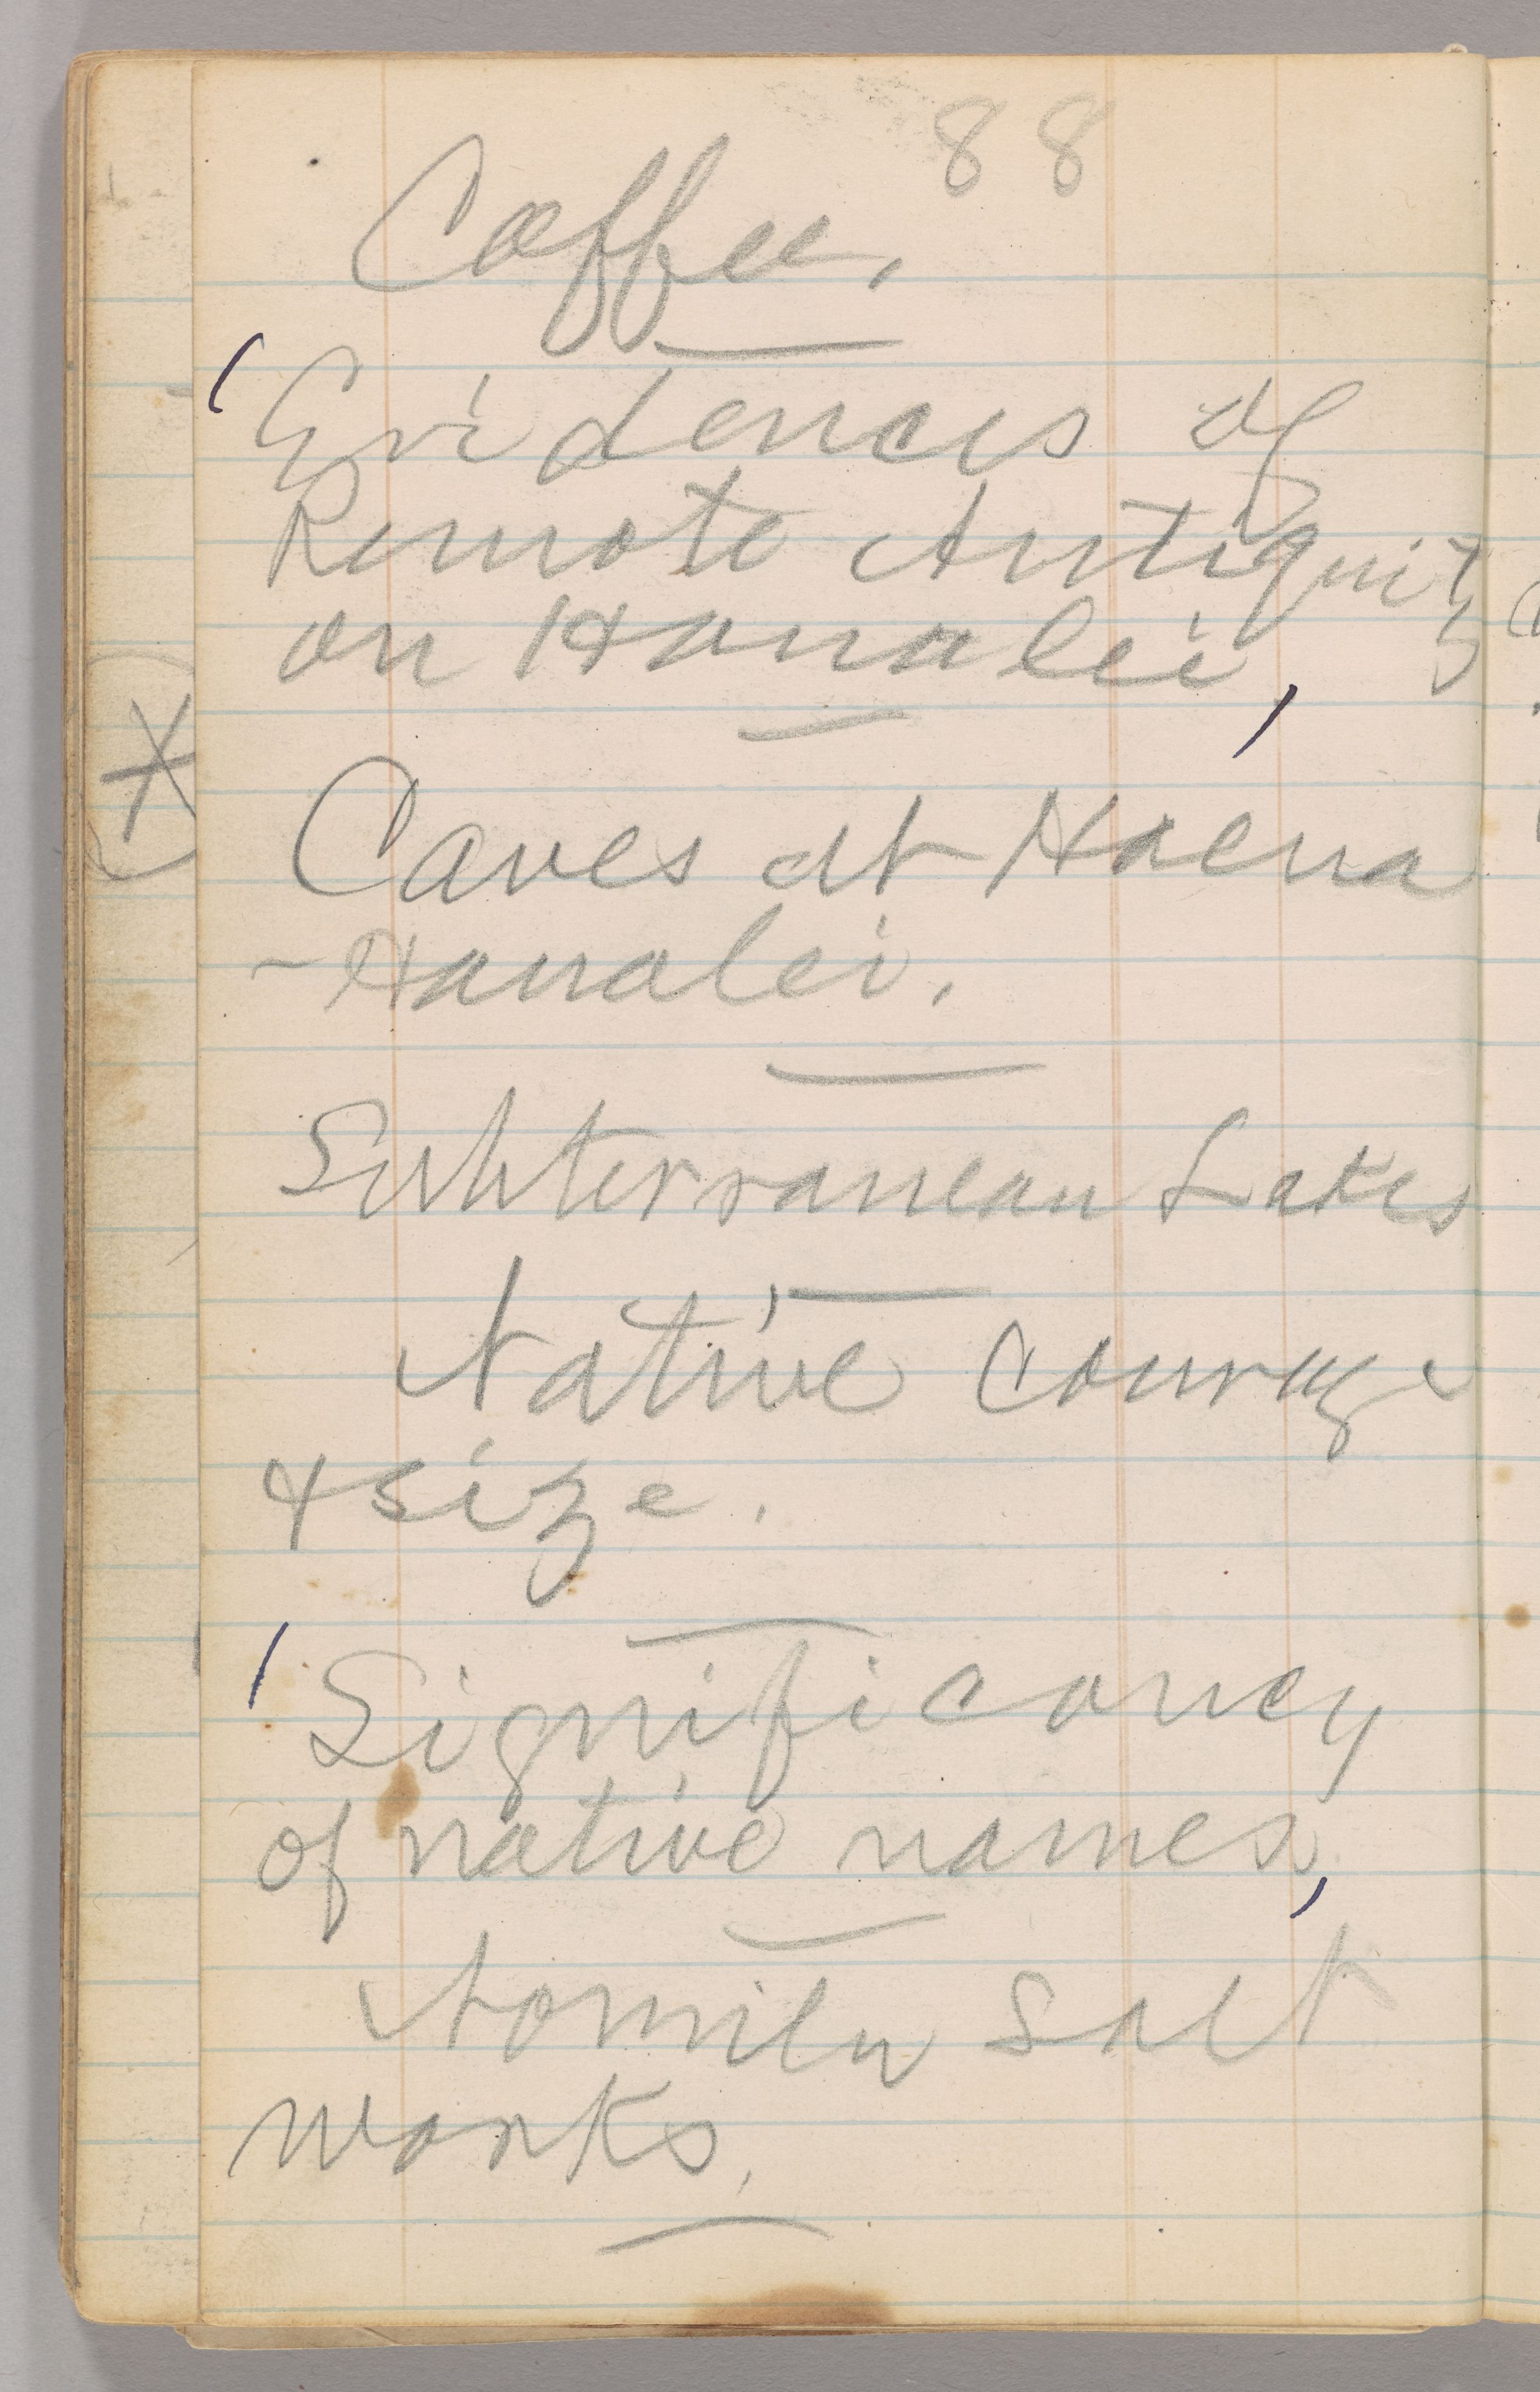 88
Coffee.
Evidences of
Remote Antiquity
on Hanalei,
Caves at Haena
- Hanalei.
Subterranean Lakes
Native courage
& size.
Significancy
of native names,
Nomilu Salt
works.